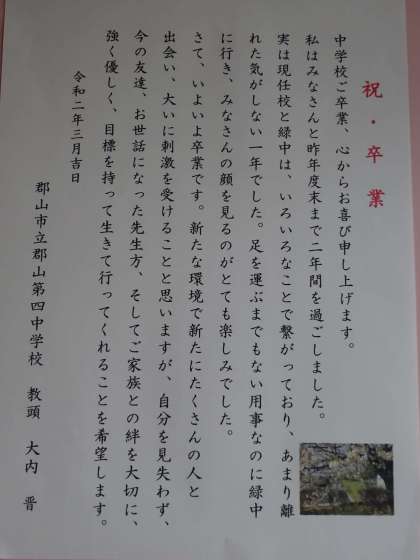 祝・卒業
中学校ご卒業、心からお喜び申し上げます。
私はみなさんと昨年度末まで二年間を過ごしました。
実は現任校と緑中は、いろいろなことで繋がっており、あまり離
れた気がしない一年でした。足を運ぶまでもない用事なのに緑中
に行き、みなさんの顔を見るのがとても楽しみでした。
さて、いよいよ卒業です。新たな環境で新たにたくさんの人と
出会い、大いに刺激を受けることと思いますが、自分を見失わず、
今の友達、お世話になった先生方、そしてご家族との絆を大切に、
強く優しく、目標を持って生きて行ってくれることを希望します。
令和二年三月吉日
郡山市立郡山第四中学校　教頭　大内　晋